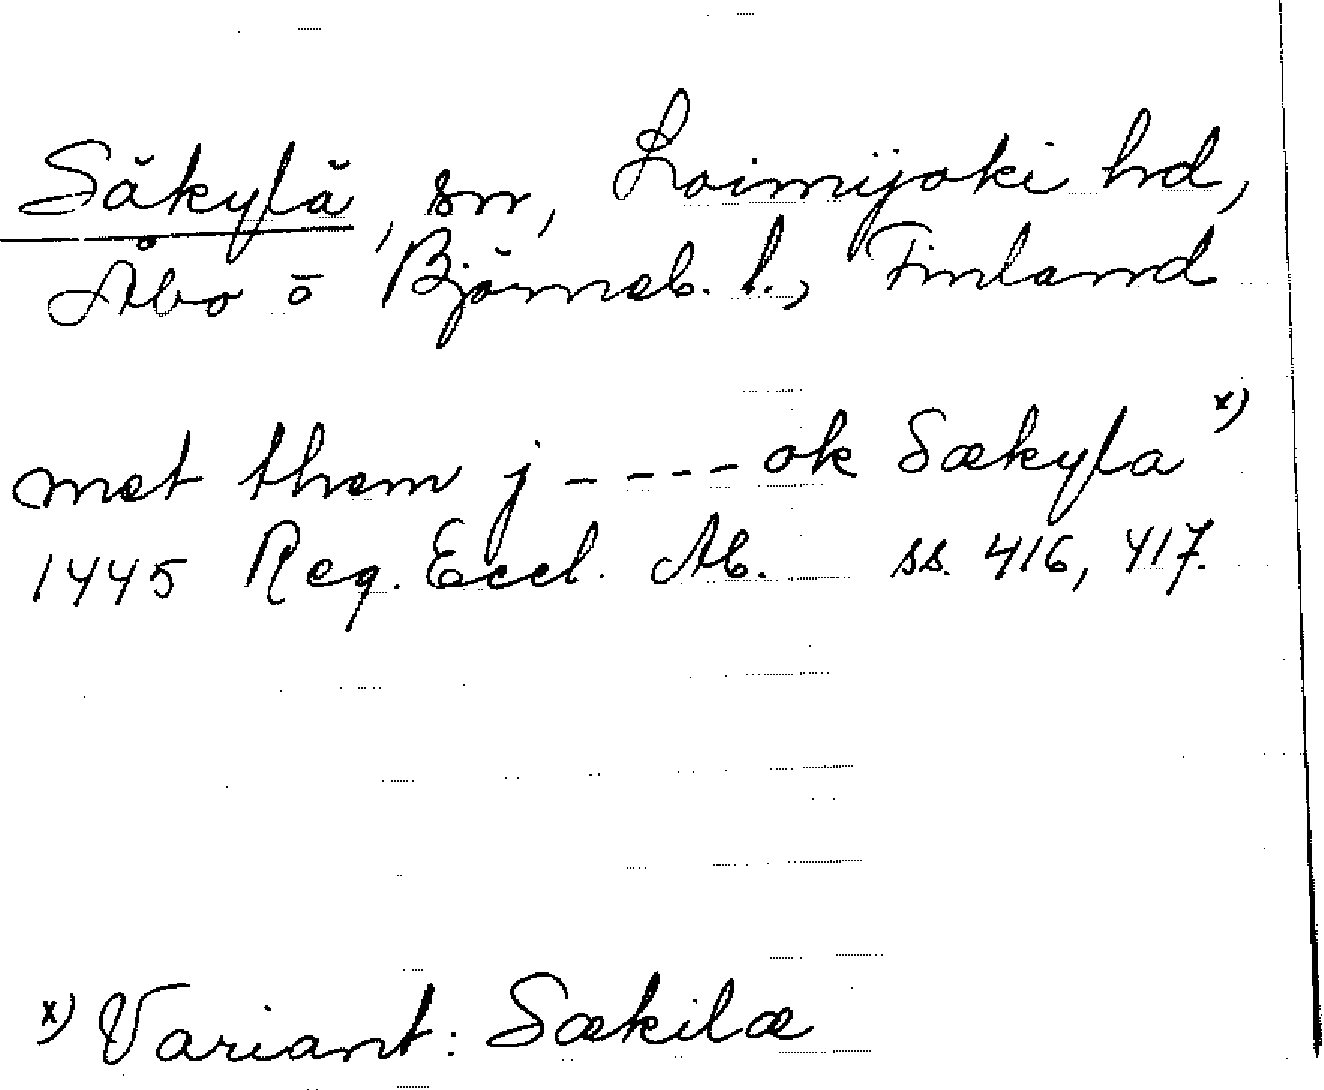 Säkylä, sn, Loimijoki hd,
Åbo o Björneb. l., Finland
mæt thæm j - - - - ok Sækyla x)
1445 Reg. Eccl. Ab. ss. 416, 417.
x) Variant: Sækilæ